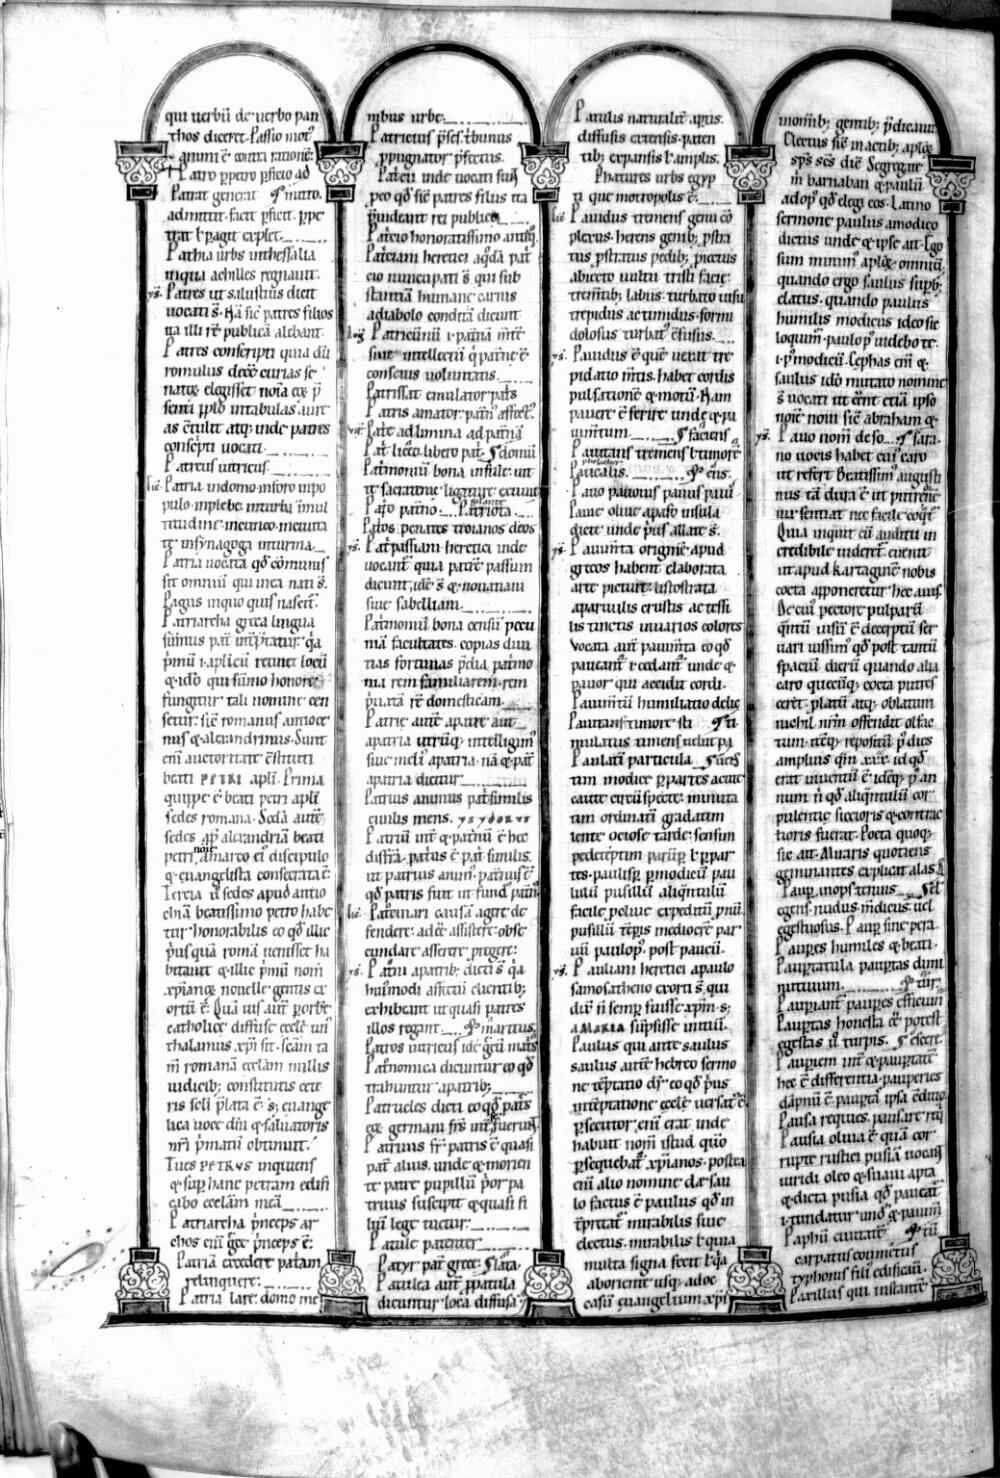 qui uerbū de uerbo pan
thos diceret. Passio mot᷒
animi ē contra rationē.
Patro ꝑpetro ꝑficio ad
Patrat generat mitto.
admittit. facit ꝑficit. ꝑpe
trat ł ꝑagit explet.
Pathia urbs inthessalia
inqua achilles regnauit.
ys. Patres ut salustius dicit
uocati s̄. Nā sic̄ patres filios
ita illi rē publicā alebant.
Patres conscripti quia dū
romulus decē curias se
natoꝝ elegisset noīa eoꝝ p̄
senti ꝑplo intabulas aure
as c̄tulit atqꝫ inde patres
conscripti uocati.
Patreus uitricus.
Patria indomo. inforo inpo
pulo. inplebe. inturba. inmul
titudine. inuinco. inciuita
te. insynagoga. inturma.
Patria uocata qđ cōmunis
sit omniū qui inea nati s̄.
Pagus inquo quis nascit᷑.
Patriarcha greca lingua
sūmus pat̄ int̄p̄tatur. q̄a
p̄mū .i. ap̄licū retinet locū
ꝗ ideo qui sūmo honore
fungitur tali nomine cen
setur. sic̄ romanus antioce
nus ꝗ alexandrinus. Sunt
enī auctoritate c̄stituti
beati PETRI apłi. Prima
quippe ē beati petri apłi
sedes romana. Scđa autē
sedes ap̄ alexandriā beati
petri noīe amarco ei᷒ discipulo
ꝗ euangelista consecrata ē.
Tercia ū sedes apud antio
chiā beatissimo petro habe
tur honorabilis eo qđ illic
p̄us quā romā uenisset ha
bitauit ꝗ illic p̄mū nom̄
xp̄ianoꝝ nouelle gentis ex
ortū ē. Quā uis aut̄ ꝑorbē
catholice diffuse eccłe un᷒
thalamus xp̄i sit. scām ta
m̄ romanā eccłam nullis
iudicibꝫ constitutis cete
ris seli p̄lata ē. sꝫ euange
lica uoce dn̄i ꝗ saluatoris
nr̄i p̄matū obtinuit.
Tu es PETRVS inquiens
ꝗ suꝑ hanc petram edifi
cabo eccłam meā
Patriarcha p̄nceps ar
chos enī grēc p̄nceps ē.
Patriā excedere palam
relinquere.
Patria lare. domo me
nibus urbe.
Patricius p̄ses. t̄bunus
ꝓpugnator p̄fectus.
Patricii inde uocati
p̄eo qđ sic̄ patres filius ita
p̄uideant rei publice.
Patricio honoratissimo antiq̄.
Patriciani heretici aq̄dā pat̄
cio nuncupati s̄ qui sub
stantiā humane carnis
adiabolo conditā dicunt
Patricinīū .i. pat̄niā mr̄ē
siue intellectū q̄ pat̄ne ē
conscius uoluntatis.
Patrissat emulator pat̄s
Patris amator. pat̄m᷒ affect᷒.
Pat̄e adlimina adpatriā
Pat̄ licēo. libero pat̄. domū
Pat̄monīū bona insule. uit
te sacratine. ligature exeunt
Pat̄o patrio. Patriota.
Pat̄os penates troianos deos
ys. Pat̄passiani heretici inde
uocant᷑ quia patrē passum
dicunt. idē s̄ ꝗ nouatiani
siue sabelliani.
Pat̄monīū bona censū pecu
niā facultates. copias diui
tias fortunas p̄dia pat̄mo
nia rem familiarem. rem
p̄uatā rē domesticam.
Patrie autē apatre aut
apatria utrūqꝫ intelligim᷒
siue meli᷒ apatria. nā ꝗ pat̄
apatria dicitur.
Patrius animus pat̄i similis
ciuilis mens. ysydorus
Patriū int̄ ꝗ pat̄nū ē hec
diffrā. pat̄us ē pat̄ similis.
ut patrius anim᷒. pat̄nus ē
qđ patris fuit ut fund᷒ pat̄n᷒.
Pat̄cinari causā agere de
fendere. adeē assistere. obse
cundare asserere ꝓtegere.
ys. Pat̄ni apatribꝫ dicti s̄ q̄a
hui᷒modi affectū clientibꝫ
exhibeant ut quasi patres
illos regant. martius.
Patros uitricus idē grēcū
Pat̄nomica dicuntur eo qđ
trahuntur apatribꝫ
Patrueles dicti eo qđ pat̄s
eoꝝ germani fr̄s int̄ fuerunt.
Patruus fr̄ patris ē quasi
pat̄ alius. unde ꝗ morien
te patre pupillū p̄or pa
truus suscipit ꝗ quasi fi
liū lege tuetur.
Patule patenter
Patyr pat̄ grēce. lata.
Patulea aut ꝓpatula
dicuntur loca diffusa
Patulis naturalit᷑ aptis.
diffusis extensis. paten
tibꝫ expansis ł amplis.
Phatures urbs egyp
ti que metropolis ē.
Pauidus tremens genu cō
plexus. herens genibꝫ ꝓstra
tus ꝓstratus pedibꝫ ꝓiectus
abiecto uultu tristi facie.
trem̄tibꝫ labiis. turbato uisu
trepidus ac timidus. formi
dolosus turbat᷒ c̄fusus.
ys. Pauidus ē quē uexat tre
pidatio m̄tis. habet cordis
pulsationē ꝗ motū. Nam
pauere ē ferire unde ꝗ pa
uim̄tum. faciens
Pauitans tremens ł timorē
Paucalis.
Pauo pauonis pauus paui
Paue oliue apaso insula
dicte unde p̄us allate s̄.
ys. Pauim̄ta originē apud
grecos habent elaborata
arte picture. listostrata
aparuulis crustis ac tessi
lis tinctis inuarios colores
Vocata aut̄ pauim̄ta eo qđ
paueant᷑ .i. cedant᷑ unde ꝗ
pauor qui accidit cordi.
Pauim̄tū humiliatio delic
Pauitans timore. sti
mulatus timens uelut
Paulatī particula.
tim modice ꝑpartes acute
caute circūspecte. minuta
tim ordinatī gradatim
lente. ociose tarde. sensim
pedetēptim parūꝑ ł ꝑpar
tes. paulisꝑ ꝑmodicū pau
lulū pusillū aliq̄ntulū
facile peliue expeditū pnū.
pusillū tēpis mediocrē par
uū paulop᷒. post paucū.
ys. Pauliani heretici apaulo
samosatheno exorti s̄. qui
dix̄ n̄ semꝑ fuisse xp̄m. sꝫ
aMARIA sūpsisse initiū.
Paulus qui ante saulus
saulus autē hebreo sermo
ne tēptatio dr̄. eo qđ p̄us
intēptatione eccłe uersat᷒ ē.
ꝑsecutor enī erat inde
habuit nom̄ istud qn̄o
ꝑsequebat᷑ xp̄ianos. postea
enī alio nomine de sau
lo factus ē paulus qđ in
t̄pretat᷑ mirabilis siue
electus. mirabilis ł quia
multa signa fecit ł q̄a
aboriente usqꝫ adoc
casū euangelium xp̄i
inomībꝫ gentibꝫ p̄dicauit
Electus sic̄ inactibꝫ apłoꝝ
sp̄s sc̄s dix̄ Segregate
m̄ barnaban ꝗ paulū
adop᷒ qđ elegi eos. Latino
sermone paulus amodico
dictus unde ꝗ ipse ait. Ego
sum minim᷒ apłoꝝ omniū.
quando ergo saulus suꝑbꝫ
elatus. quando paulus
humilis modicus ideo sic
loquim᷒. paulo p᷒ uidebo te.
.i. p᷒ modicū. Cephas enī ꝗ
saulus ido mutato nomine
s̄ uocati ut eēnt etiā ipso
noīe noui sic̄ abraham ꝗ
ys. Pauo nom̄ de so. sara.
no uocis habet cui᷒ caro
ut refert beatissim᷒ augusti
nus tā dura ē ut putredinē
uix sentiat nec facile coq̄t᷑.
Quia inquit cū auditu in
credibile uideret᷑ euenit
ut apud kartaginē nobis
cocta apponeretur hec auis.
De cui᷒ pectore pulparū
q̄ntū uisū ē decerptū ser
uari iussim᷒ qđ post tantū
spaciū dierū quando alia
caro quecūqꝫ cocta putres
ceret. platū atqꝫ oblatum
nichil nr̄m offendit olfac
tum. itēqꝫ repositū p᷒ dies
amplius qm̄ .xxx. id qđ
erat inuentū ē. idēqꝫ p᷒ an
num n̄ qđ aliq̄ntulū cor
pulentie siccioris ꝗ contrac
tioris fuerat. Poeta quoqꝫ
sic ait. Miraris quotiens
geminantes explicit alas.
Pauꝑ inops tenuis
egens. nudus. m̄dicus. uel
egestuosus. Pauꝑ sine pera.
Pauꝑes humiles ꝗ beati.
Pauꝑtatula pauꝑtas dimi
nutiuum.
Pauꝑiant᷑ pauꝑes efficiunt᷑
Pauꝑtas honesta eē potest
egestas ū turpis.
Pauꝑiem int̄ ꝗ pauꝑtatē
hec ē differentia. pauꝑies
dāpnū ē. pauꝑtā ipsa c̄ditio.
Pausa requies. pausare req̄
Pausia oliua ē quā cor
rupte rustici pusiā uocant
uiridi oleo ꝗ suaui apta
ꝗ dicta pusia qđ paueat᷑
.i. tundatur unđ ꝗ pauim̄
Paphiī ciuitatē.
carpatus coūnictus
typhonis filii edificauī.
Paxillus qui instantē